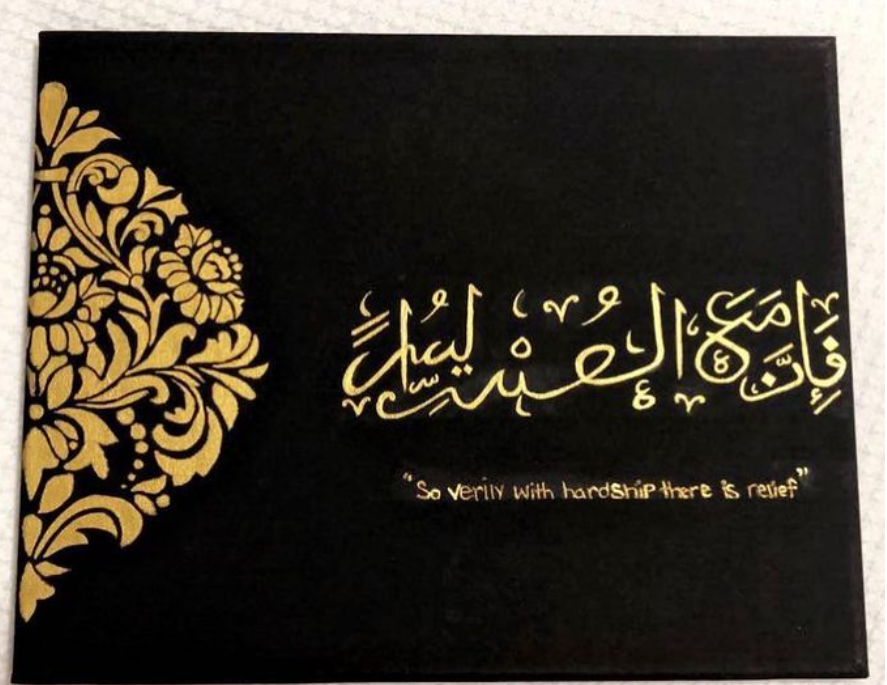 فَإِنَّ مَعَ الْعُسْرِ يُسْرًا
"So verily with hardship there is relief"